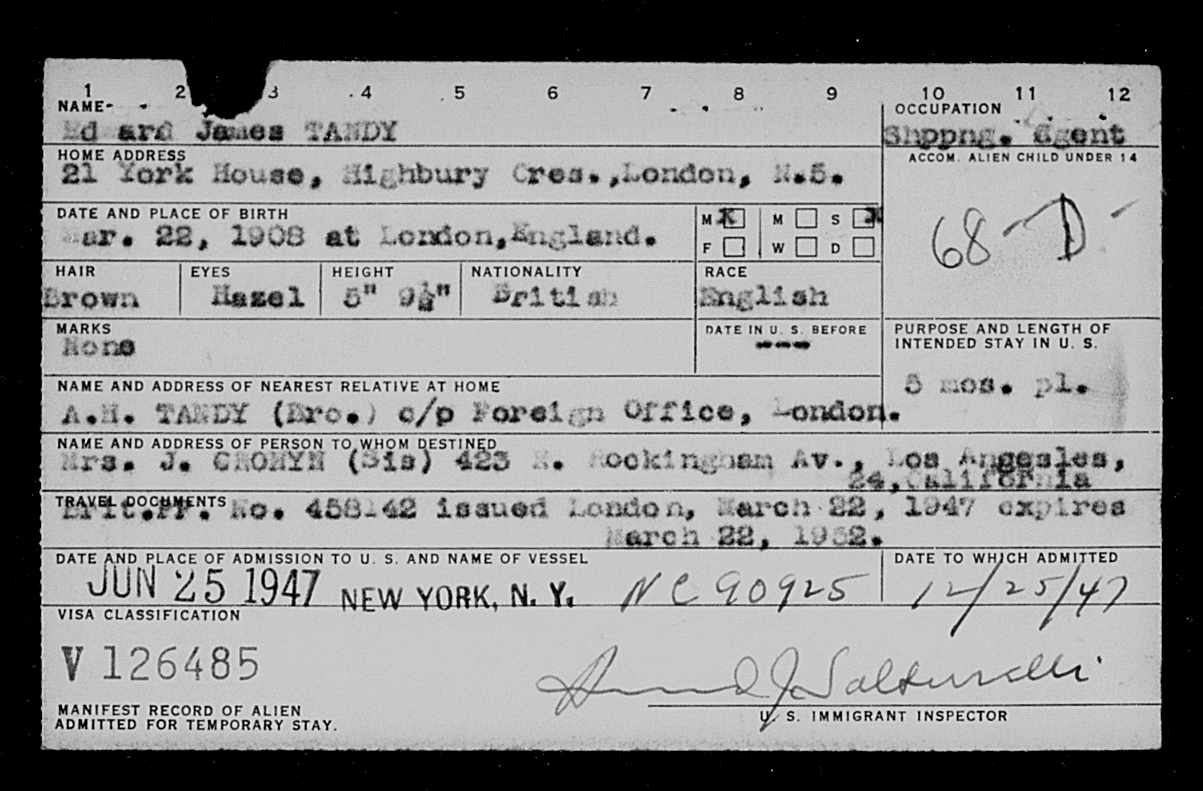 1 2 3 4 5 6 7 8 9 10 11 12
NAME OCCUPATION
Edward James TANDY Shppng. Agent
HOME ADDRESS ACCOM. ALIEN CHILD UNDER 14
21 York House, Highbury Cres.,London, N.5.
68-D
DATE AND PLACE OF BIRTH M X M S X
Mar. 22, 1908 at London,England. F W D
HAIR EYES HEIGHT NATIONALITY RACE
Brown Hazel 5" 9½" British English
MARKS DATE IN U. S. BEFORE PURPOSE AND LENGTH OF
None --- INTENDED STAY IN U. S.
NAME AND ADDRESS OF NEAREST RELATIVE AT HOME 5 mos. pl.
A.H. TANDY (Bro.) c/p Foreign Office, London.
NAME AND ADDRESS OF PERSON TO WHOM DESTINED
Mrs. J. CRONYN (Sis) 423 N. Rockingham Av., Los Angeales,
24,California
TRAVEL DOCUMENTS
Brit.PP. No. 458142 issued London, March 22, 1947 expires
March 22, 1952.
DATE AND PLACE OF ADMISSION TO U. S. AND NAME OF VESSEL DATE TO WHICH ADMITTED
JUN 25 1947 NEW YORK, N. Y. NC 90925 12/25/47
VISA CLASSIFICATION
V 126485
MANIFEST RECORD OF ALIEN
ADMITTED FOR TEMPORARY STAY. U. S. IMMIGRANT INSPECTOR